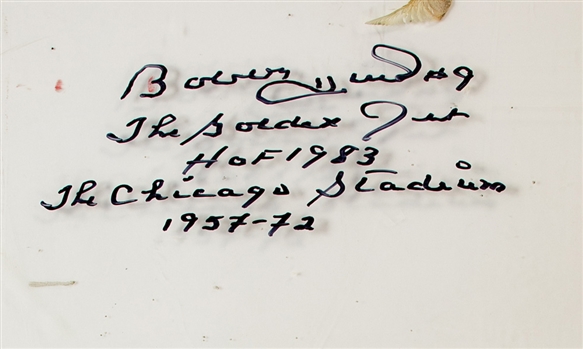 Bobby Hull #9
The Golden Jet
HOF 1983
The Chicago Stadium
1957-72